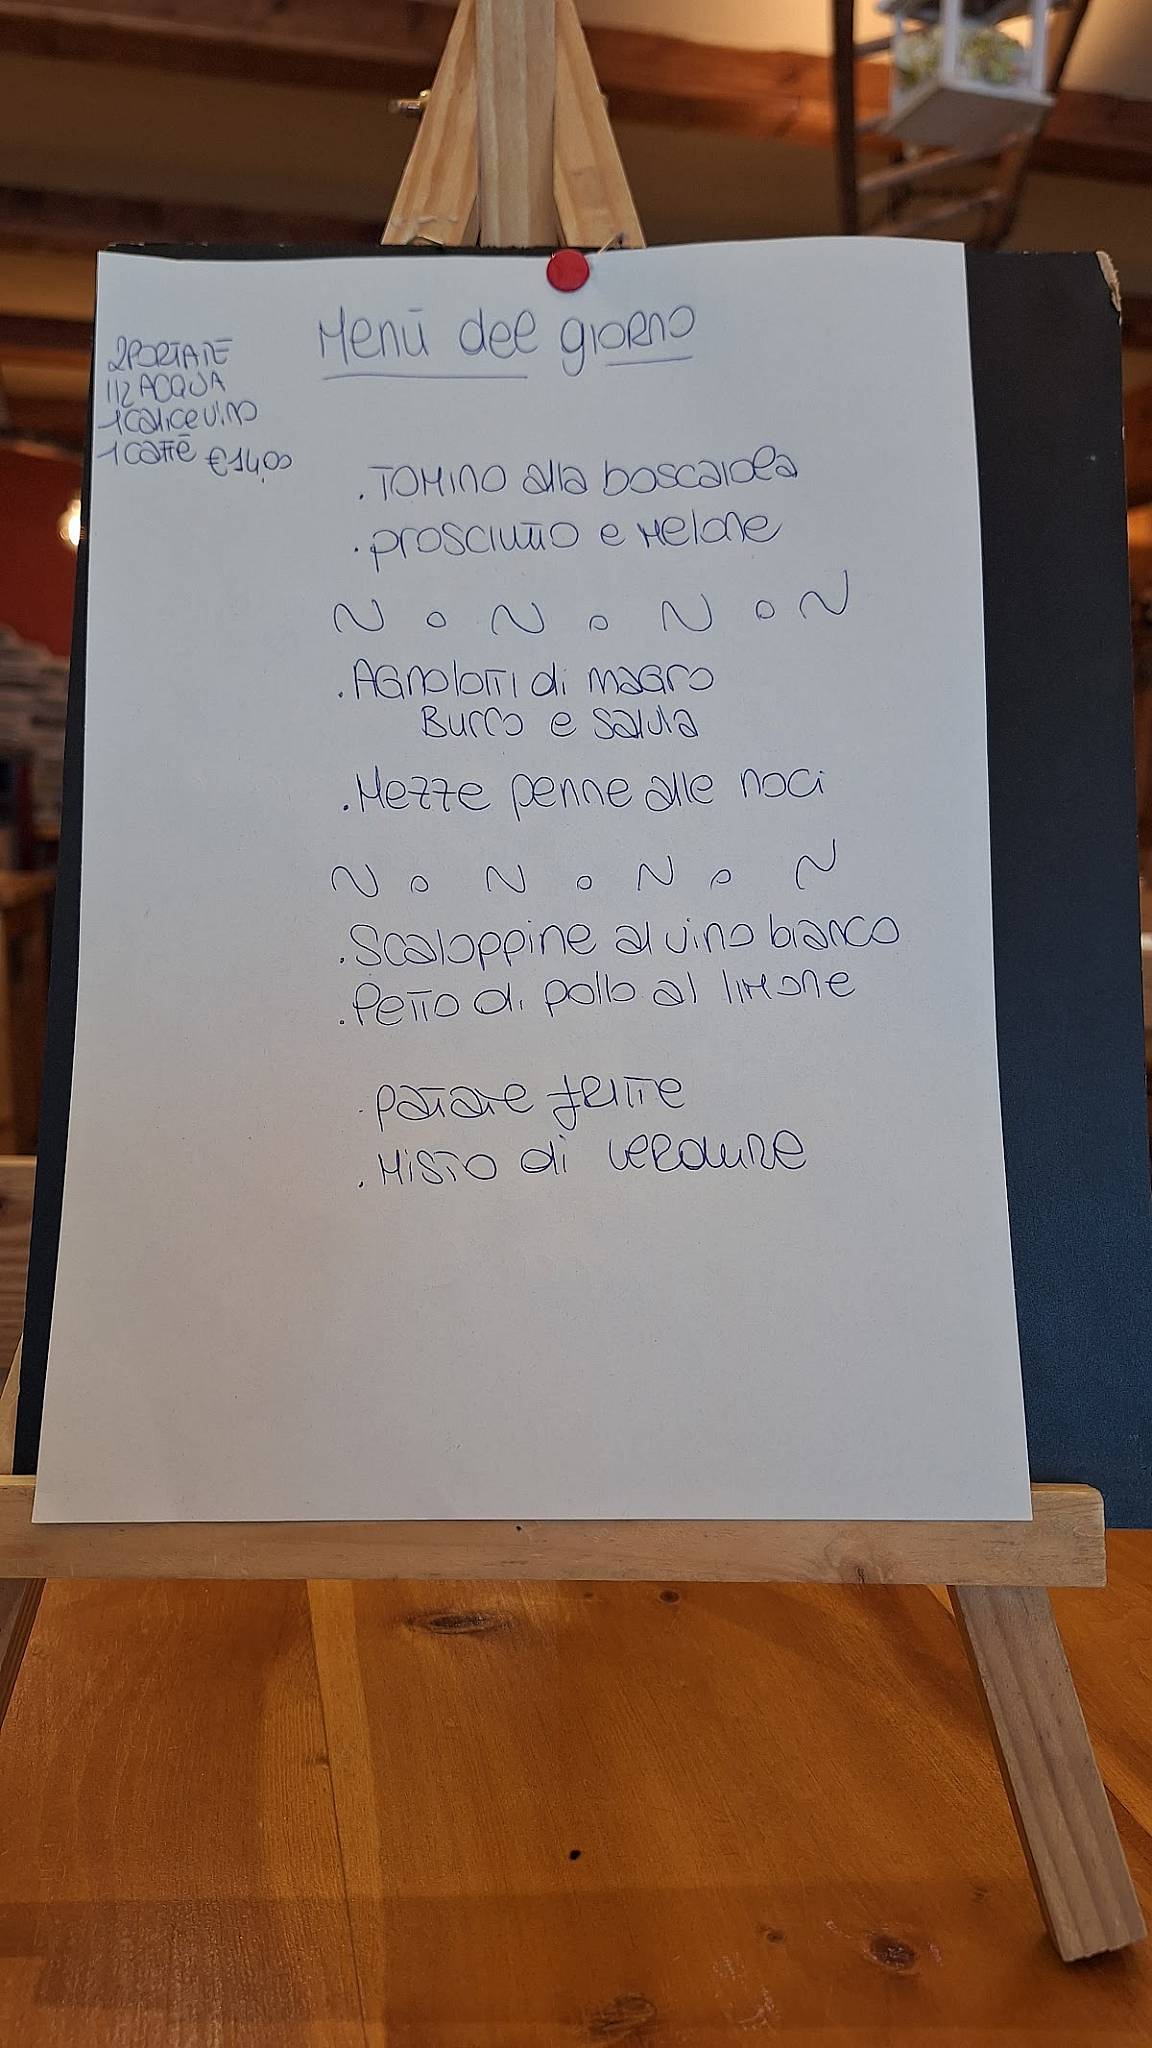 Menù del giorno
2 PORTATE
1/2 ACQUA
1 calice vino
1 caffè €14,00
. TOMINO alla boscaiola
. prosciutto e Melone
~ o ~ o ~ o ~
. AGNOLOTTI di magro
Burro e salvia
. Mezze penne alle noci
~ o ~ o ~ o ~
. Scaloppine al vino bianco
. Petto di pollo al limone
. patate fritte
. Misto di verdure